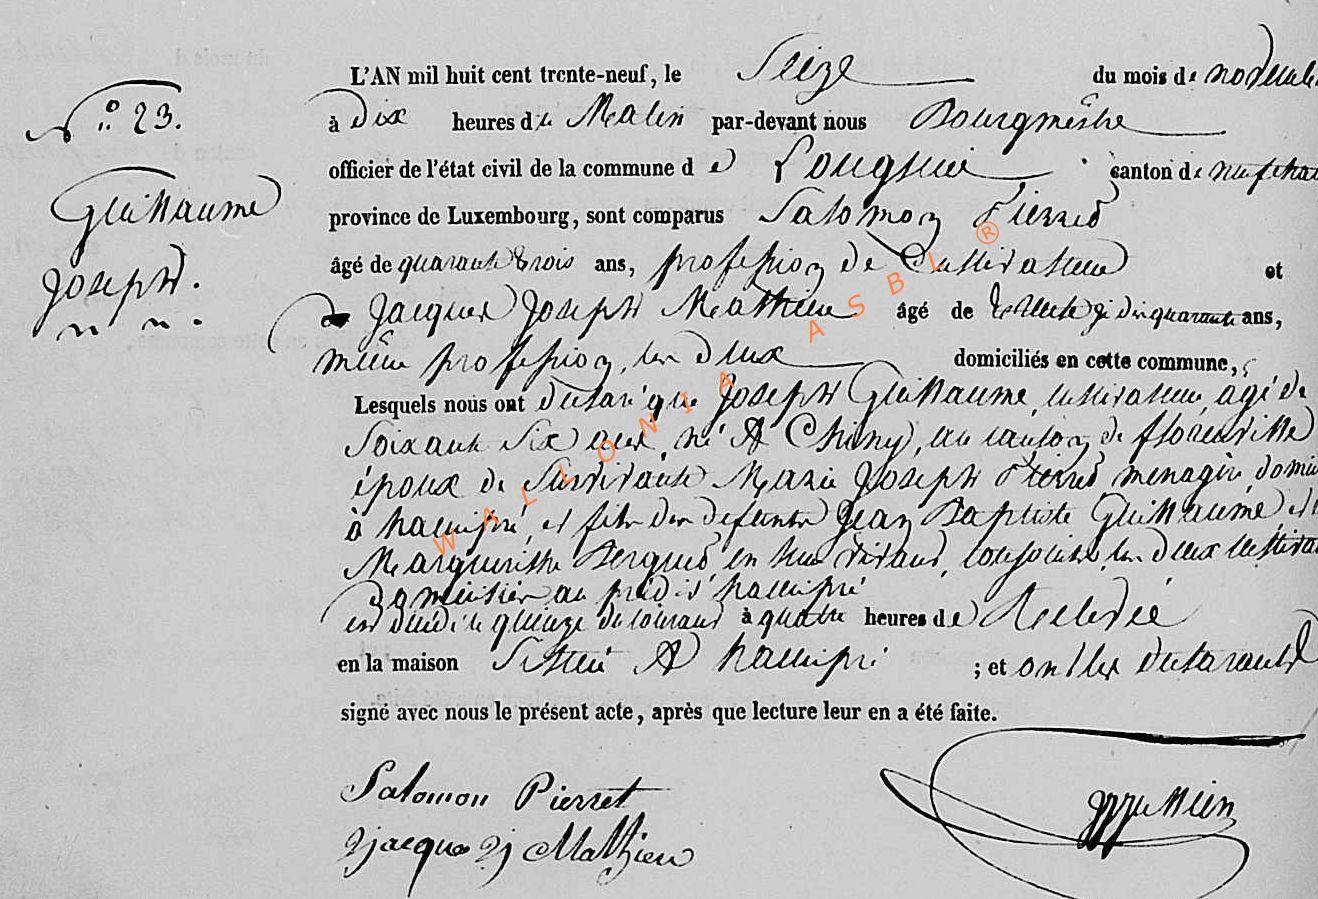 L'AN mil huit cent trente-neuf, le Seize du mois de novembre
N° 23. à Dix heures du Matin par-devant nous Bourgmestre
officier de l'état civil de la commune de Longlier canton de neufchat
Guillaume province de Luxembourg, sont comparus Salomon Pierret
Joseph. âgé de quarante trois ans, profession de Cultivateur et
de Jacques Joseph Mathieu âgé de quarante ans,
même profession, les deux domiciliés en cette commune,
Lesquels nous ont déclaré que Joseph Guillaume, cultivateur, agé de
Soixante Six ans, né A Chiny, au canton de florenville
époux de Survivante Marie Joseph Pierret menagère, domici
à hamipré, et fils des defunts Jean Baptiste Guillaume, et
Marguerithe en leur vivant, conjoints, les deux cultivat
Domiciliés au prédit hamipré
est décédé le quinze du courant à quatre heures de Relevée
en la maison Sittuée A hamipré ; et ont les déclarants
signé avec nous le présent acte, après que lecture leur en a été faite.
Salomon Pierret
jacque j Mathieu
WALLONIA ASBL ®